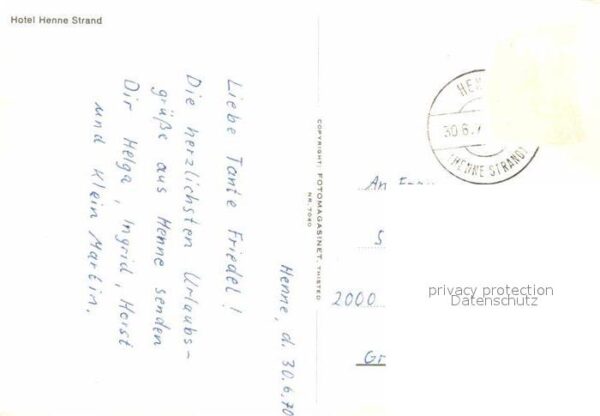 Hotel Henne Strand
Henne, d. 30.6.70
Liebe Tante Friedel!
Die herzlichsten Urlaubs-
grüße aus Henne senden
Dir Helga, Ingrid, Horst
und Klein Martin.
COPYRIGHT: FOTOMAGASINET, THISTED
NR. 7040
30.6.7
(HENNE STRAND)
An
S
2000
privacy protection
Datenschutz